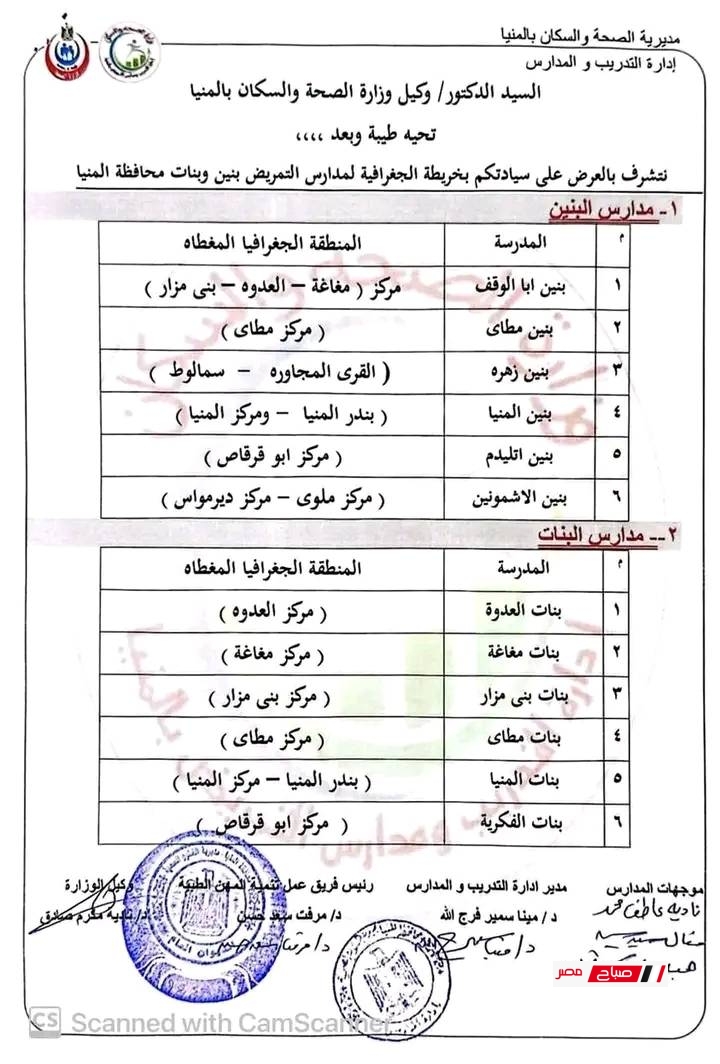 مديرية الصحة والسكان بالمنيا
إدارة التدريب و المدارس
السيد الدكتور/ وكيل وزارة الصحة والسكان بالمنيا
تحيه طيبة وبعد ،،،،
نتشرف بالعرض على سيادتكم بخريطة الجغرافية لمدارس التمريض بنين وبنات محافظة المنيا
١- مدارس البنين
م المدرسة المنطقة الجغرافيا المغطاه
١ بنين ابا الوقف مركز ( مغاغة – العدوه – بنى مزار )
٢ بنين مطاى ( مركز مطاى )
٣ بنين زهره ( القرى المجاوره – سمالوط )
٤ بنين المنيا ( بندر المنيا – ومركز المنيا )
٥ بنين اتليدم ( مركز ابو قرقاص )
٦ بنين الاشمونين ( مركز ملوى – مركز ديرمواس )
٢-- مدارس البنات
م المدرسة المنطقة الجغرافيا المغطاه
١ بنات العدوة ( مركز العدوه )
٢ بنات مغاغة ( مركز مغاغة )
٣ بنات بنى مزار ( مركز بنى مزار )
٤ بنات مطاى ( مركز مطاى )
٥ بنات المنيا ( بندر المنيا – مركز المنيا )
٦ بنات الفكرية ( مركز ابو قرقاص )
موجهات المدارس مدير ادارة التدريب و المدارس رئيس فريق عمل تنمية المهن الطبية وكيل الوزارة
نادية عاطف محمد د / مينا سمير فرج الله د/ مرفت سعد حسين د/ نادية مكرم صادق
صباح مصر
CS Scanned with CamScanner